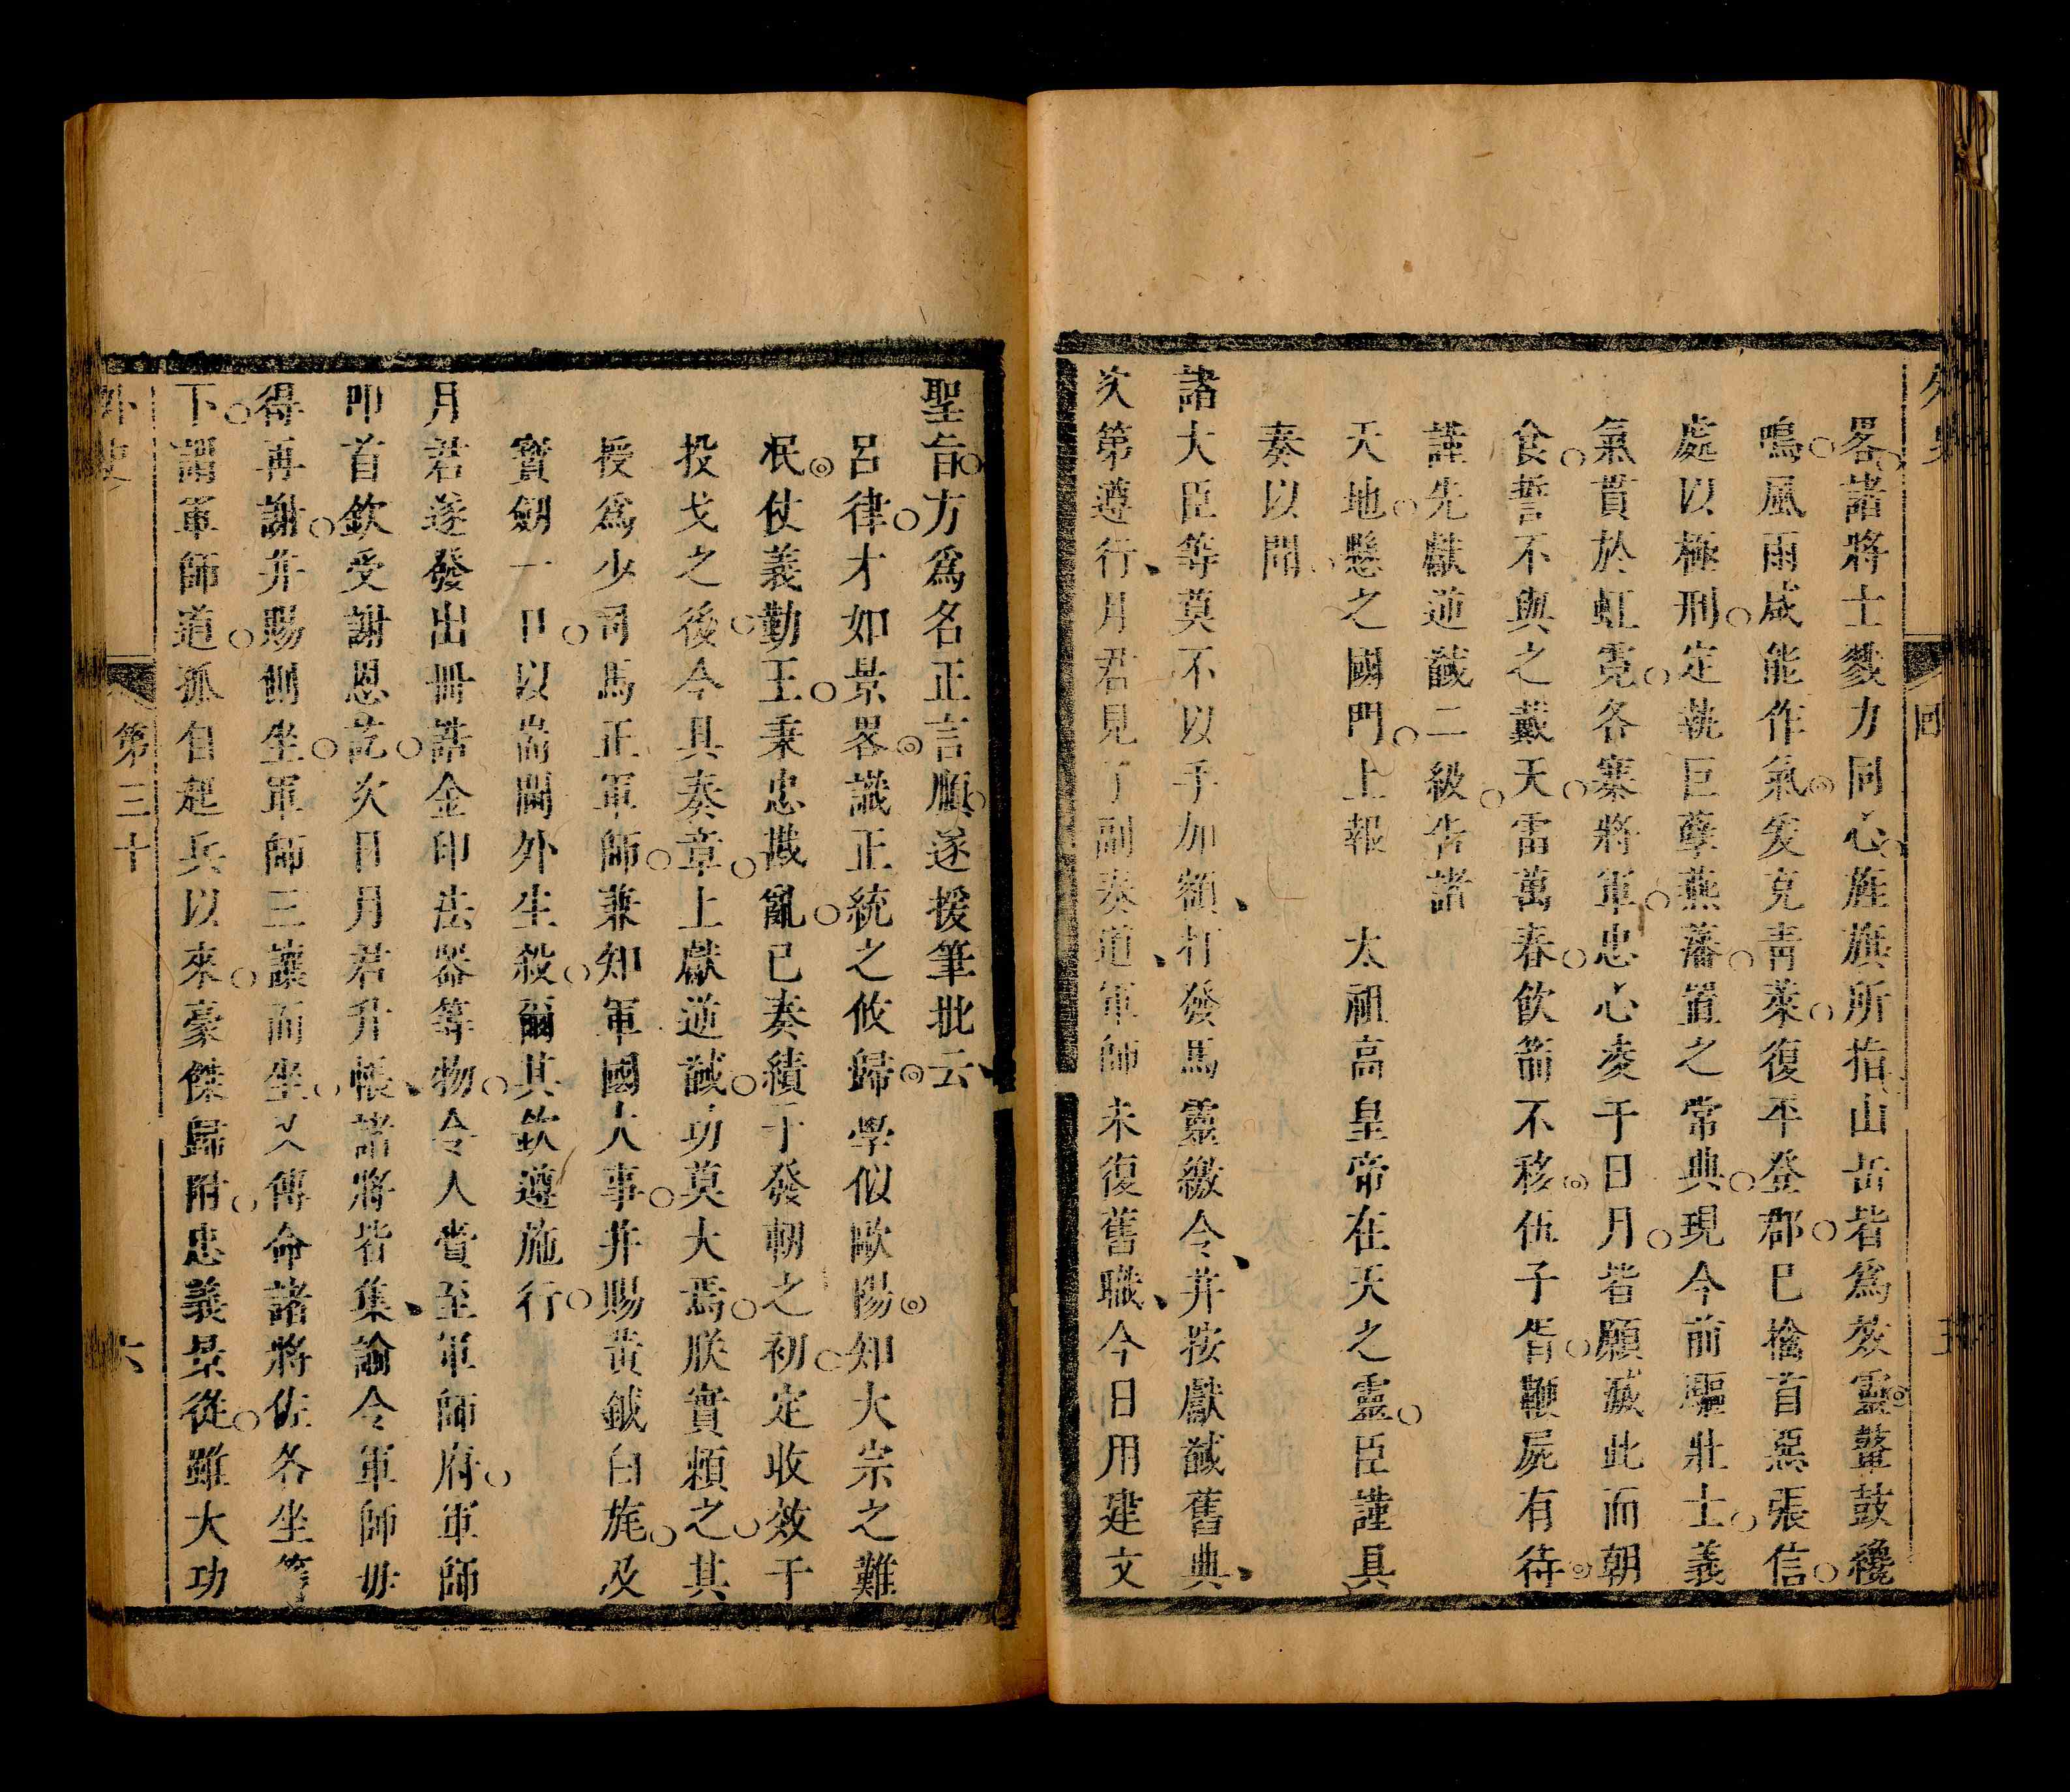 畧諸將士戮力同心旌旗所指山岳皆爲效靈鼙鼓纔
鳴風雨咸能作氣爰克青萊復平登郡巳擒首惡張信
處以極刑定執巨孽燕藩置之常典現今前驅壯士義
氣貫於虹霓各寨將軍忠心凌于日月皆願滅此而朝
食誓不與之戴天雷萬春飲箭不移伍子胥鞭屍有待
謹先獻逆馘二級告諸
天地懸之國門上報 太祖高皇帝在天之靈臣謹具
奏以聞
諸大臣等莫不以手加額打發馬靈繳令并按獻馘舊典
次第遵行月君見了副奏道軍師未復舊職今日用建文
聖旨方爲名正言順遂援筆批云
呂律才如景畧識正統之攸歸學似歐陽知大宗之難
泯仗義勤王秉忠戡亂已奏績于發軔之初定收效于
投戈之後今具奏章上獻逆馘功莫大焉朕實賴之其
授爲少司馬正軍師兼知軍國大事并賜黄鉞白旄及
寶劒一口以耑閫外生殺爾其欽遵施行
月君遂發出冊誥金印法器等物令人賫至軍師府軍師
叩首欽受謝恩訖次日月君升帳諸將皆集諭令軍師毋
得再謝并賜側坐軍師三讓而坐又傳命諸將佐各坐
下謂軍師道孤自起兵以來豪傑歸附忠義景從雖大功
外史
第三十
六